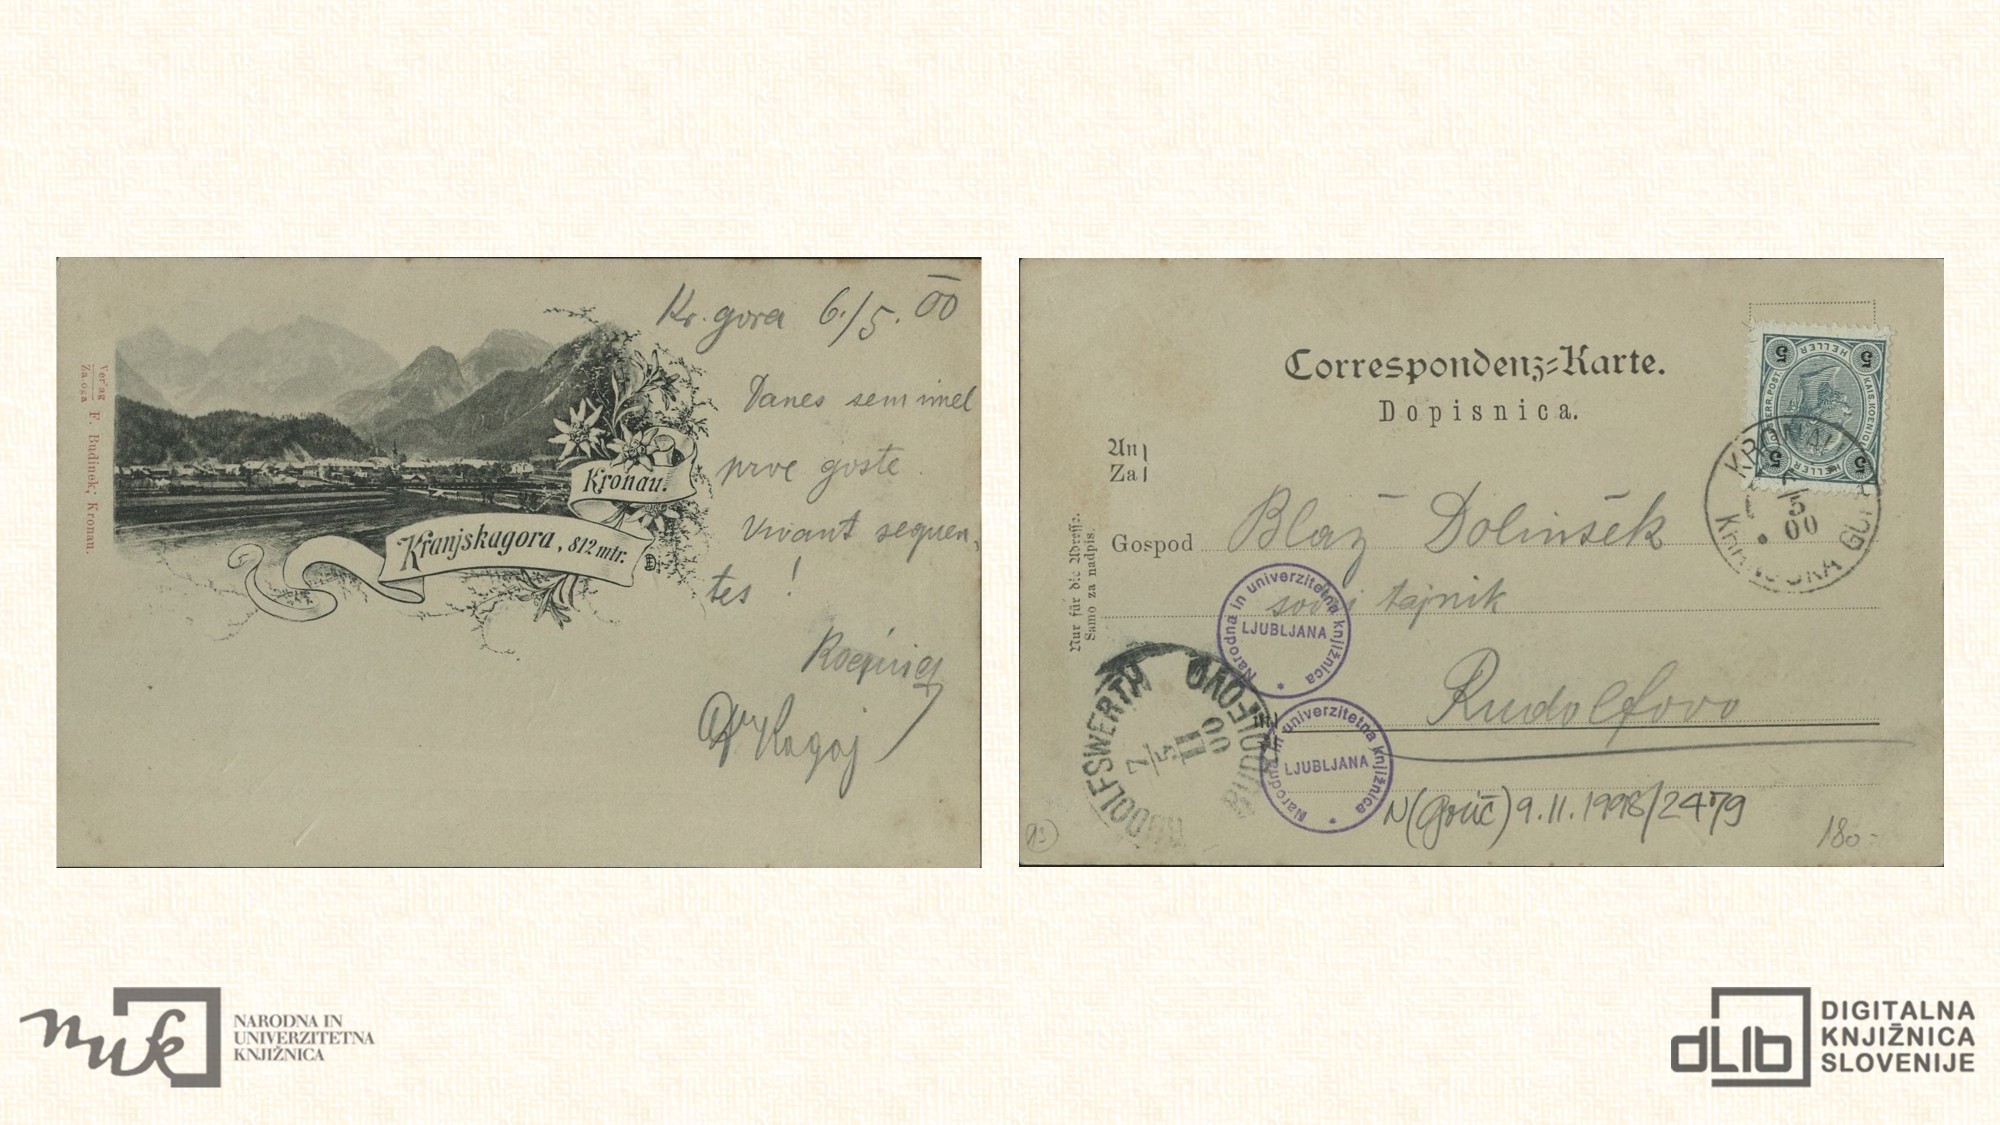 Kr. gora 6./5. 00
Danes sem imel
prve goste.
Vivant sequen-
tes!
Verlag
Zaloga
F. Budinek; Kronau.
Kronau.
Kranjskagora, 812 mtr.
Correspondenz-Karte.
Dopisnica.
An
Za
Gospod Blaž Dolinšek
sodni tajnik
Rudolfovo
Nur für die Adresse.
Samo za nadpis.
5 HELLER 5
5 HELLER 5
KRONAU
5
00
GORA
RUDOLFSWERTH
RUDOLFOVO
7/5
11
00
Narodna in univerzitetna knjižnica
LJUBLJANA
Narodna in univerzitetna knjižnica
LJUBLJANA
N(Gorič) 9.11.1998/2479
180-
NARODNA IN
UNIVERZITETNA
KNJIŽNICA
nuk
dLib
DIGITALNA
KNJIŽNICA
SLOVENIJE